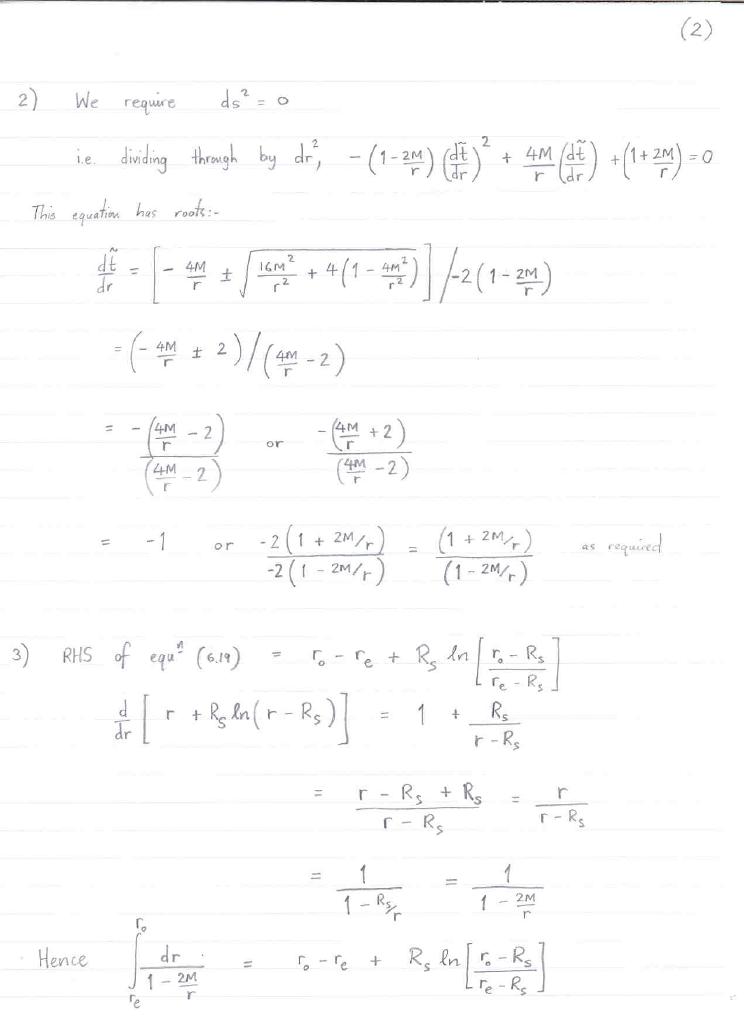 (2)
2) We require ds² = 0
i.e. dividing through by dr², -(1 - 2M/r)(dt̃/dr)² + 4M/r (dt̃/dr) + (1 + 2M/r) = 0
This equation has roots:-
dt̃/dr = [- 4M/r ± √(16M²/r² + 4(1 - 4M²/r²))] / -2(1 - 2M/r)
= (- 4M/r ± 2) / (4M/r - 2)
= -(4M/r - 2)/(4M/r - 2) or -(4M/r + 2)/(4M/r - 2)
= -1 or -2(1 + 2M/r)/-2(1 - 2M/r) = (1 + 2M/r)/(1 - 2M/r) as required
3) RHS of equⁿ (6.19) = r₀ - rₑ + Rₛ ln[(r₀ - Rₛ)/(rₑ - Rₛ)]
d/dr [r + Rₛ ln(r - Rₛ)] = 1 + Rₛ/(r - Rₛ)
= (r - Rₛ + Rₛ)/(r - Rₛ) = r/(r - Rₛ)
= 1/(1 - Rₛ/r) = 1/(1 - 2M/r)
Hence ∫_{rₑ}^{r₀} dr/(1 - 2M/r) = r₀ - rₑ + Rₛ ln[(r₀ - Rₛ)/(rₑ - Rₛ)]